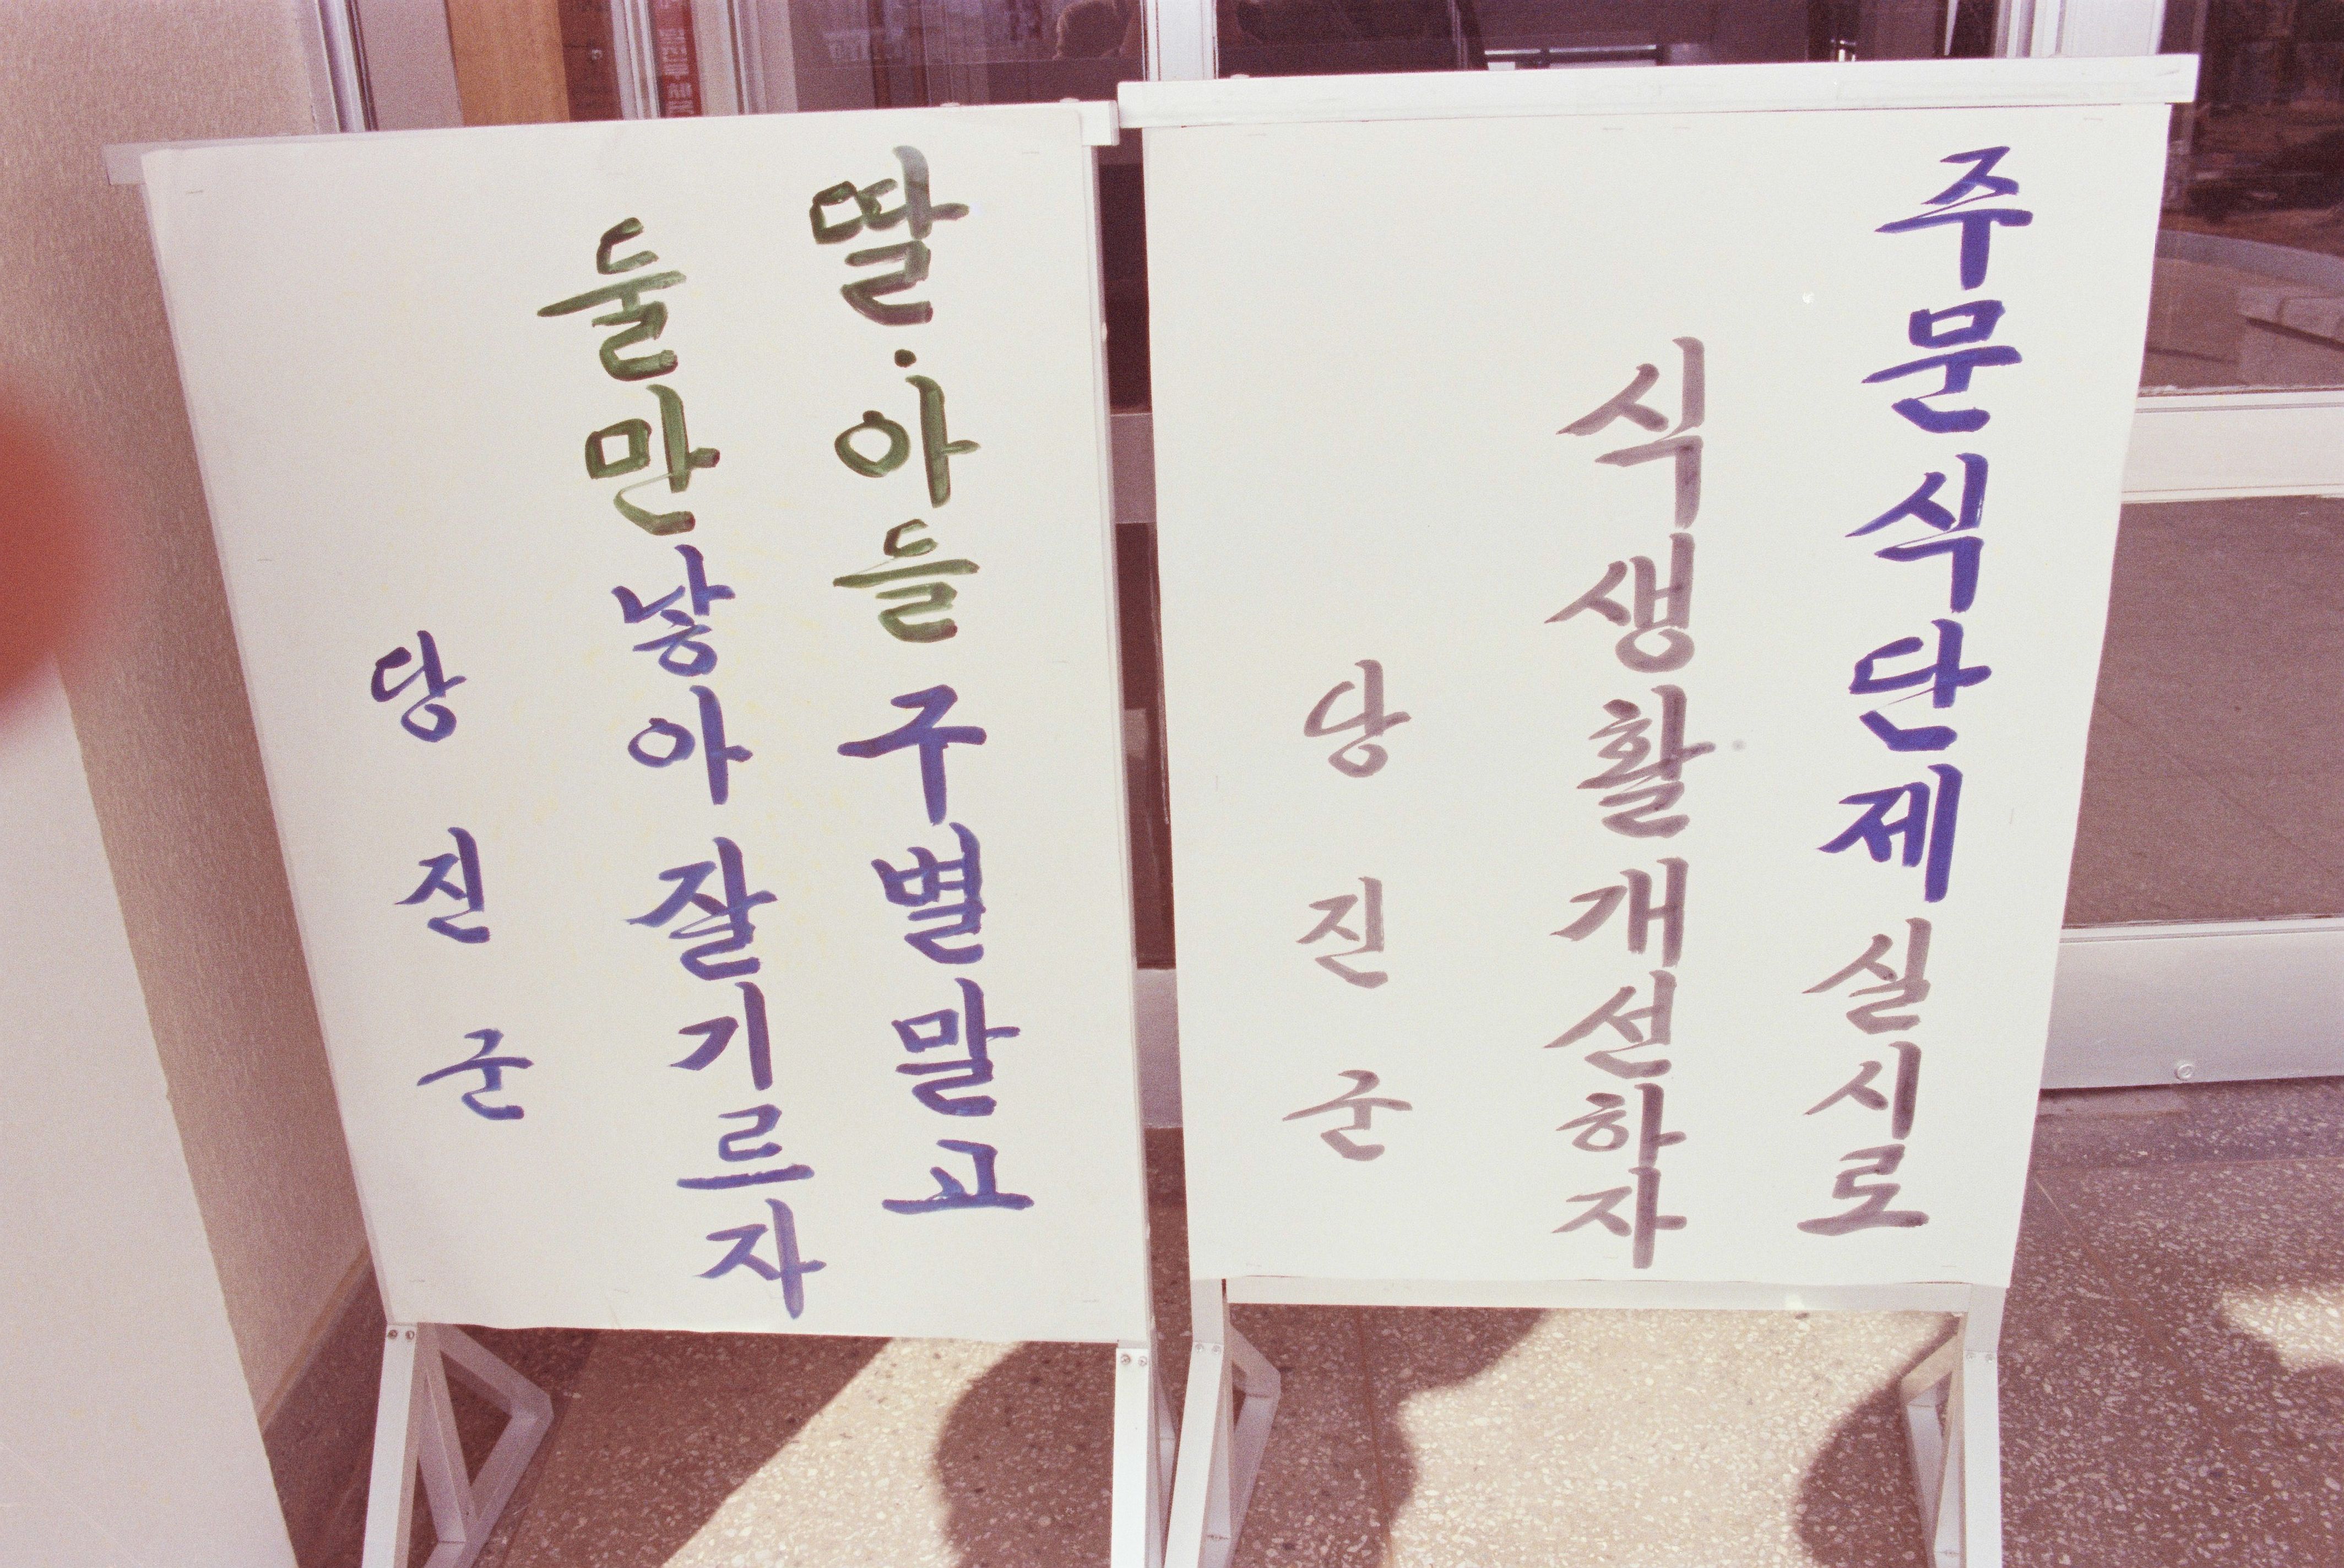 주문식단제실시로
식생활개선하자
당진군
딸·아들구별말고
둘만낳아잘기르자
당진군